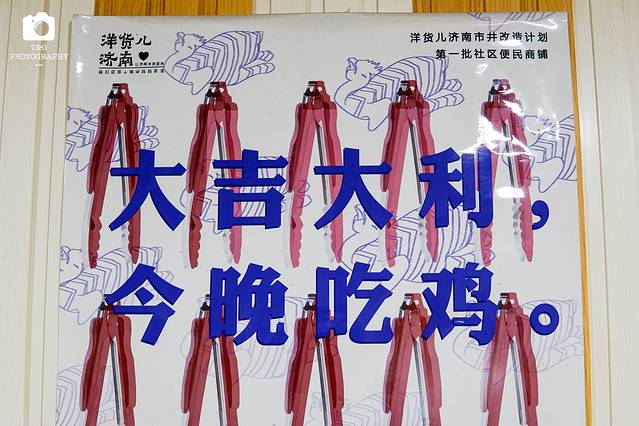 T&G
PHOTOGRAPHY
洋货儿
济南
洋货儿济南市井改造计划
第一批社区便民商铺
大吉大利，
今晚吃鸡。